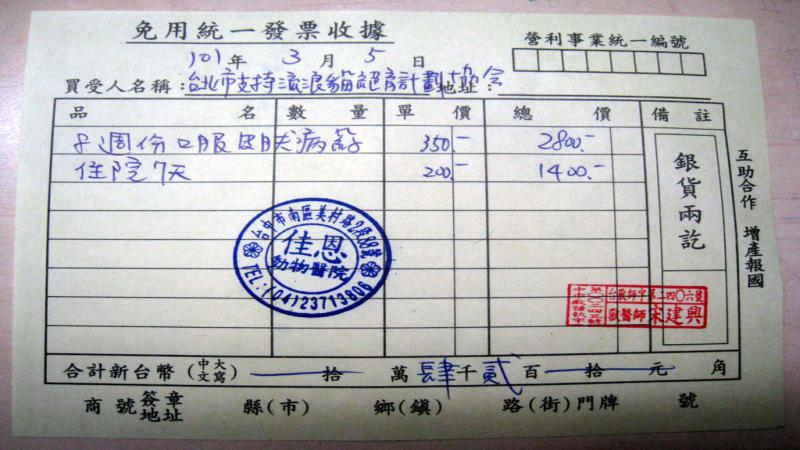 免用統一發票收據
101年 3月 5日
營利事業統一編號
買受人名稱:台北市支持流浪貓絕育計劃協会 地址:
品名 數量 單價 總價 備註
8週份口服 病 350.- 2800.-
住院7天 200.- 1400.-
銀貨兩訖
互助合作 增產報國
台中市南區美村路2段88號
佳恩
動物醫院
TEL:(04)23713806
台獸師字第二四〇六號
獸醫師宋建興
合計新台幣(中文大寫) 拾 萬 肆千貳百 拾 元 角
商號簽章地址 縣(市) 鄉(鎮) 路(街)門牌 號